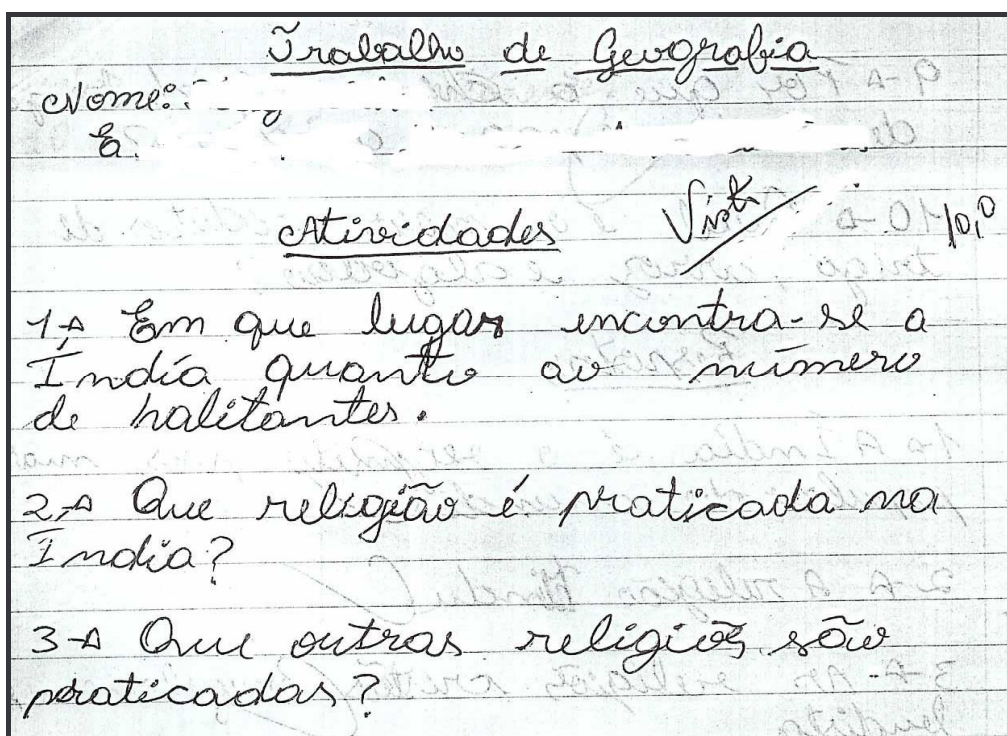 Trabalho de Geografia
Nome:
E.
Atividades Visto 10,0
1→ Em que lugar encontra-se a
Índia quanto ao número
de habitantes.
2→ Que religião é praticada na
Índia?
3→ Que outras religiõs são
praticadas?